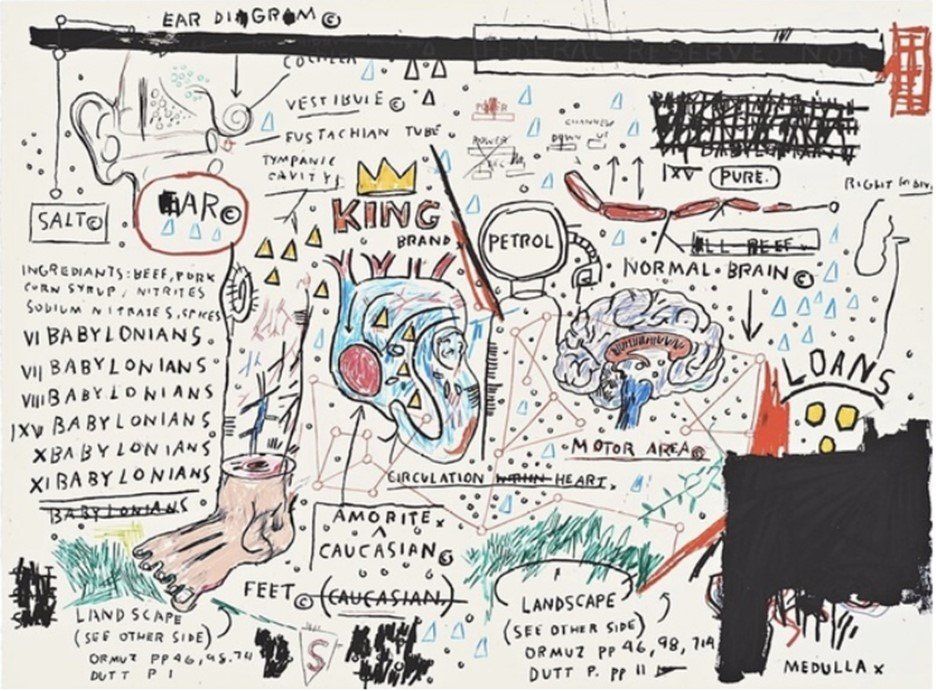 EAR DIAGRAM©
FEDERAL RESERVE NOTE
COCHLEA
VESTIBULE ©
EUSTACHIAN TUBE
TYMPANIC
CAVITY
POWER
CHANNEL
POWER
DOWN UP
SALT©
EAR©
KING
BRAND
PETROL
IXV PURE.
ALL BEEF
NORMAL BRAIN ©
RIGHT
INGREDIANTS: BEEF, PORK
CORN SYRUP, NITRITES
SODIUM NITRATES, SPICES
VI BABYLONIANS
VII BABYLONIANS
VIII BABYLONIANS
IXV BABYLONIANS
X BABYLONIANS
XI BABYLONIANS
BABYLONIANS
LOANS
MOTOR AREA©
CIRCULATION WITHIN HEART.
AMORITE x
CAUCASIAN©
FEET© (CAUCASIAN.)
LANDSCAPE
(SEE OTHER SIDE)
ORMUZ PP 46, 98. 714
DUTT P 1
S
LANDSCAPE
(SEE OTHER SIDE)
ORMUZ PP 46, 98, 714
DUTT P. PP 11
MEDULLA x